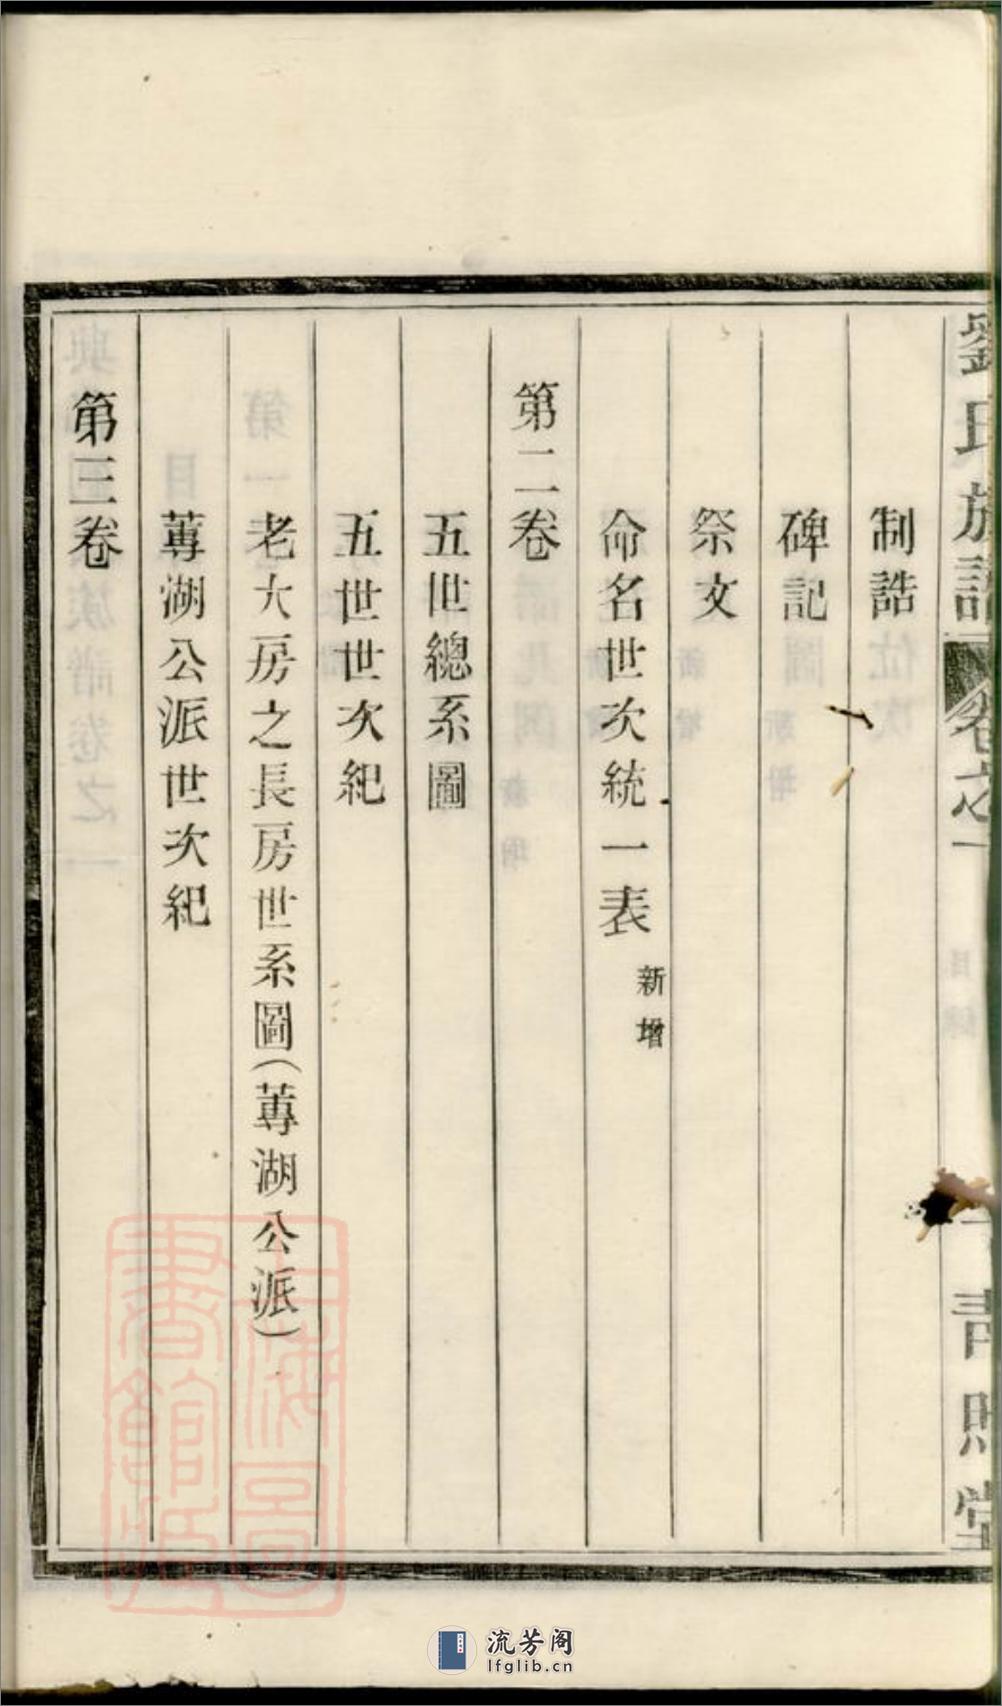 劉氏族譜 卷之一 青照堂
制誥
碑記
祭文
命名世次統一表 新增
第二卷
五世總系圖
五世世次紀
老大房之長房世系圖(蓴湖公派)
蓴湖公派世次紀
第三卷
上海圖書館藏
流芳阁
lfglib.cn